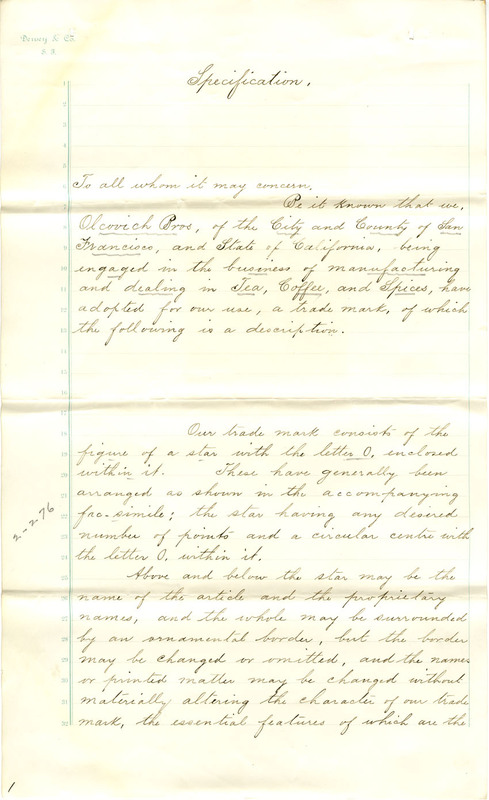 Dewey & Co.
S. F.
Specification.
To all whom it may concern.
Be it known that we,
Olcovich Bros, of the City and County of San
Francisco, and State of California, being
engaged in the business of manufacturing
and dealing in Tea, Coffee, and Spices, have
adopted for our use, a trade mark, of which
the following is a description.
Our trade mark consists of the
figure of a star with the letter O. enclosed
within it. These have generally been
arranged as shown in the accompanying
fac-simile; the star having any desired
number of points and a circular centre with
the letter O. within it.
2-2-76
Above and below the star may be the
name of the article and the proprietary
names, and the whole may be surrounded
by an ornamental border, but the border
may be changed or omitted, and the names
or printed matter may be changed without
materially altering the character of our trade
mark, the essential features of which are the
1